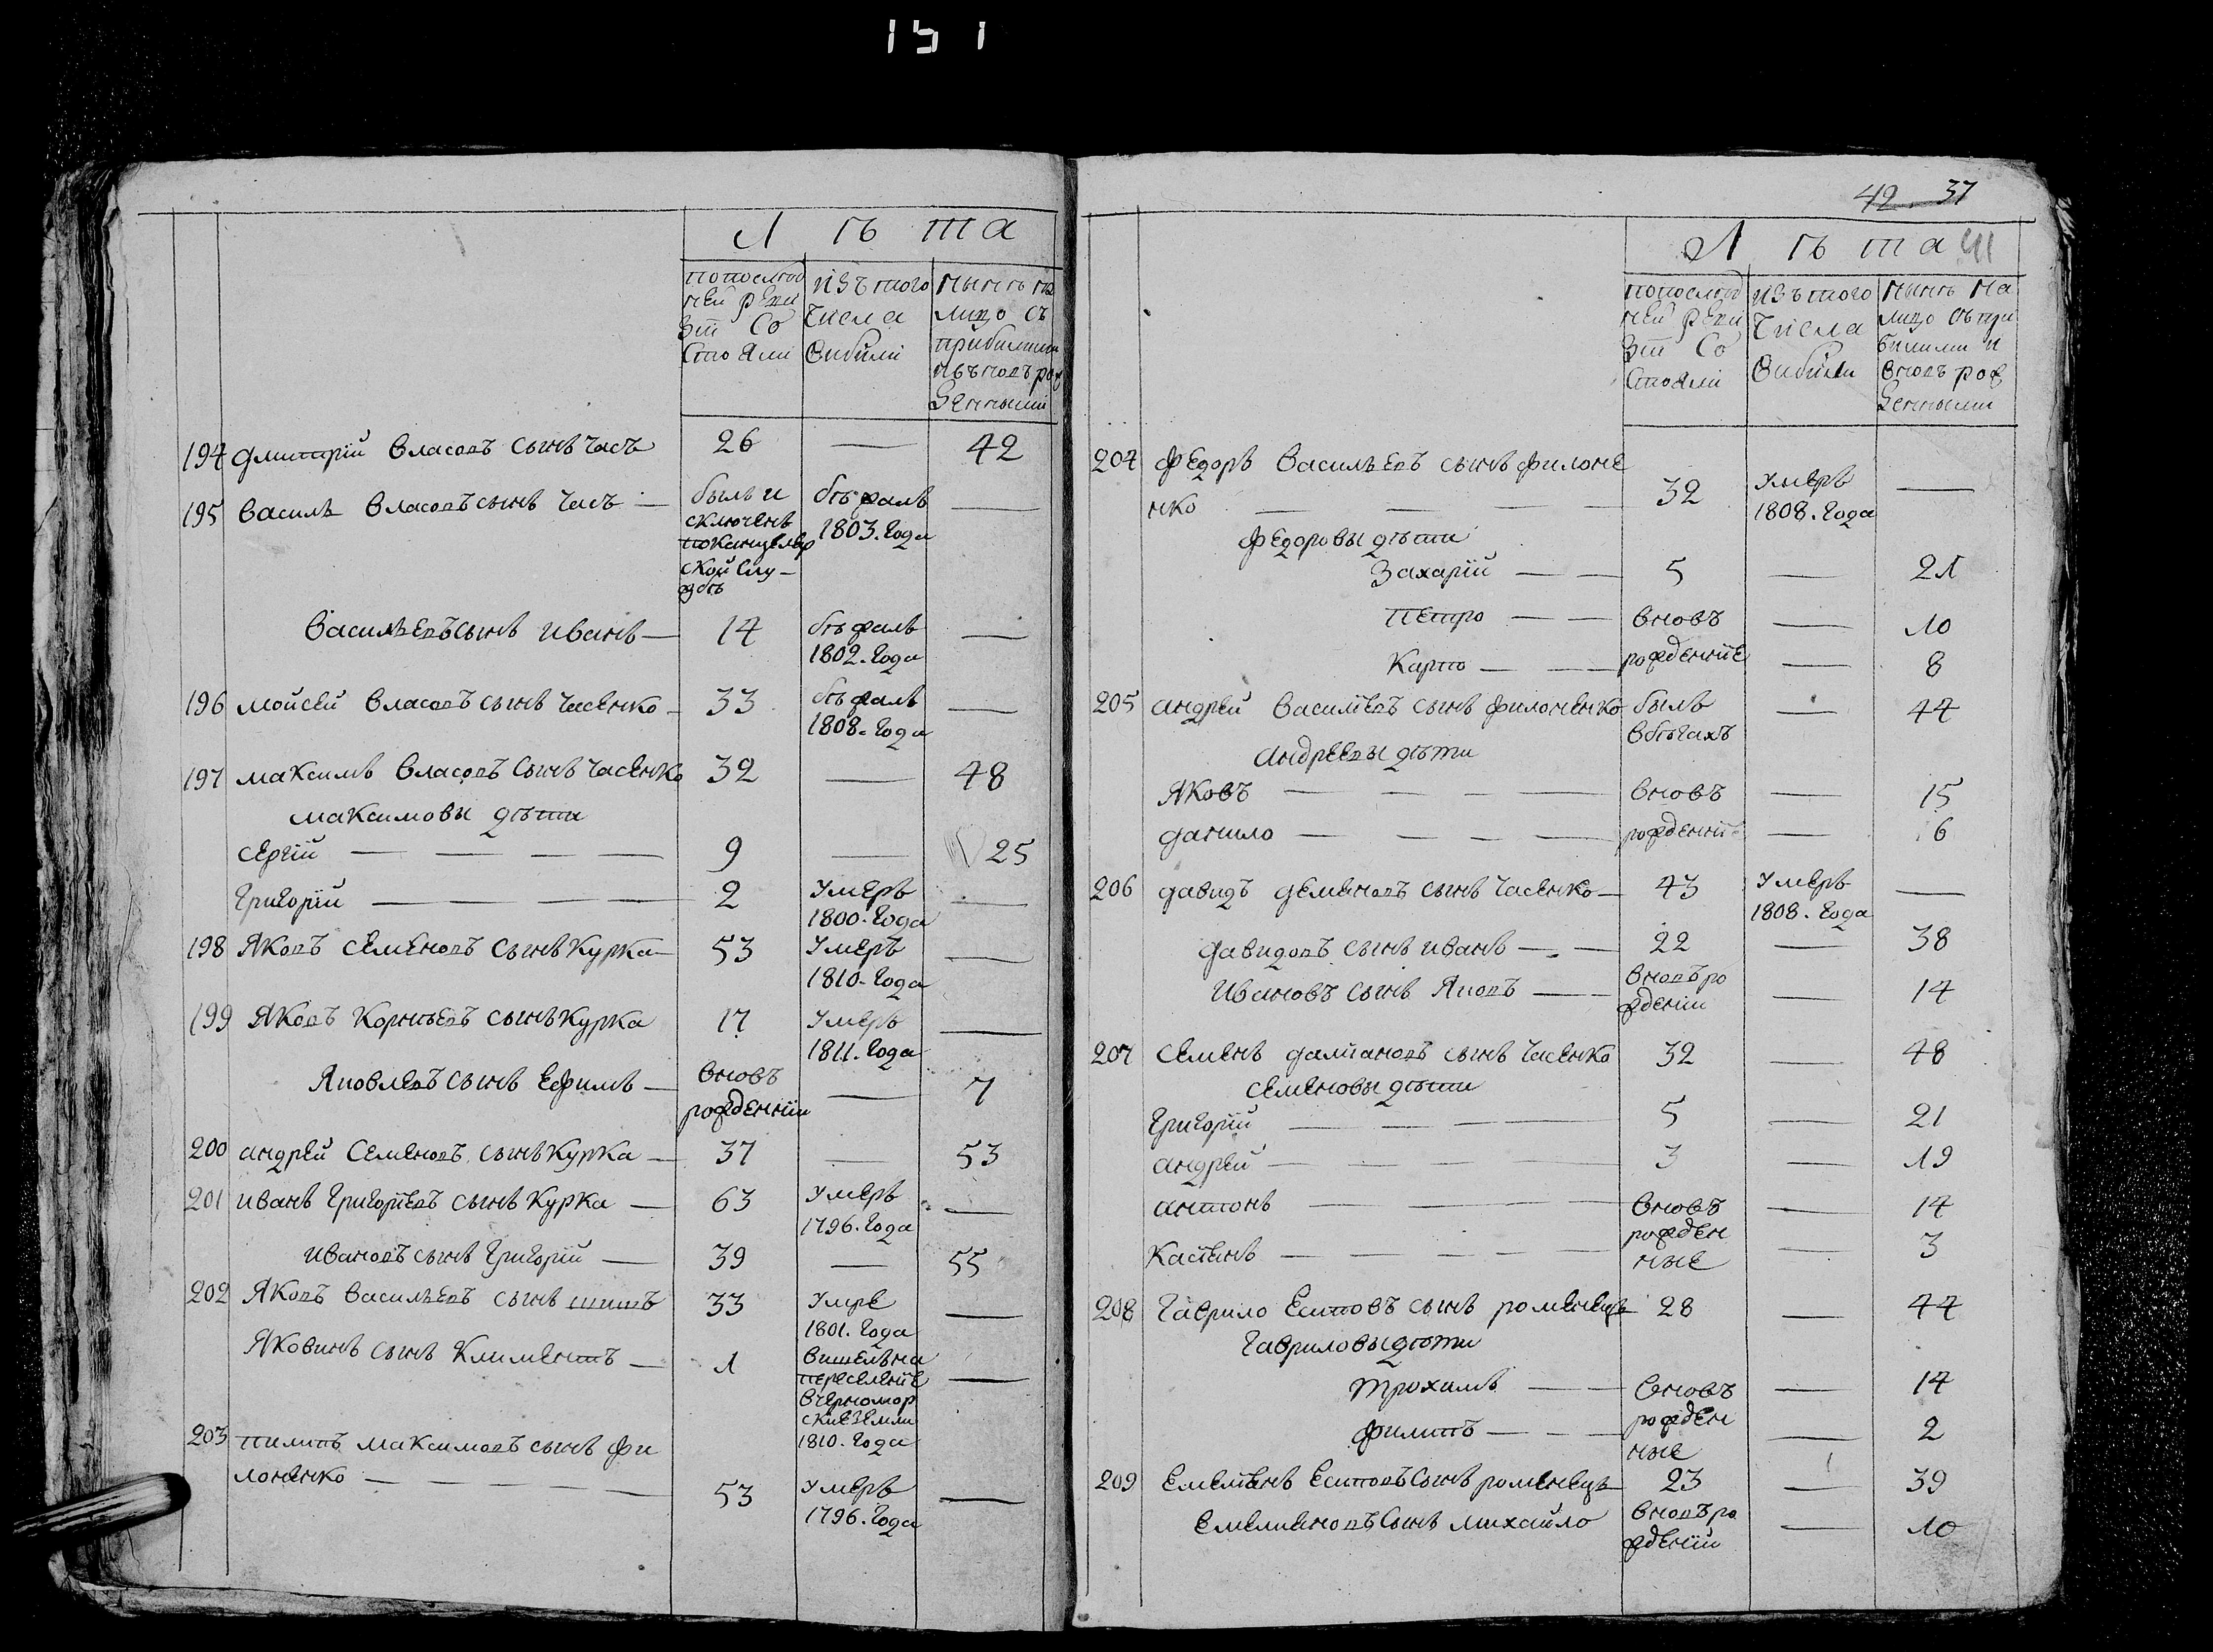 151
Лѣта
попослѣд изъ того нынѣ на
ней реви числа лицо съ
зіи Со выбыли прибылыми
стояли ивъновь рож
денными
194 Дмитрій Власовъ сынъ Часъ 26 — 42
195 Василь Власовъ сынъ Часъ — былъ и бѣжалъ —
сключенъ 1803. Года
поканцеляр
ской Слу–
жбѣ
Васильевъ сынъ Иванъ — 14 бѣжалъ —
1802. Года
196 Мойсей Власовъ сынъ Часенко — 33 бѣжалъ —
1808. Года
197 Максимъ Власовъ сынъ Часенко 32 — 48
Максимовы дѣти
Сергій — — — — 9 — 25
Григорій — — — — 2 Умеръ —
1800. Года
198 Яковъ Семеновъ сынъ Курка — 53 Умеръ —
1810. Года
199 Яковъ Корнѣевъ сынъ Курка 17 Умеръ —
1811. Года
Яковлевъ сынъ Ефимъ — вновь — 7
рожденній
200 Андрей Семеновъ сынъ Курка — 37 — 53
201 Иванъ Григорїевъ сынъ Курка — 63 Умеръ —
1796. Года
Ивановъ сынъ Григорій — 39 — 55
202 Яковъ Васильевъ сынъ 33 Умре —
1801. Года
Яковинъ сынъ Климентъ — 1 вишелъ на —
переселеніе
вчерномор
скіе земли
1810. Года
203 Пилипъ Максимовъ сынъ Фи
лоненко — — — — 53 Умеръ —
1796. Года
42 37
Лѣта 41
попослѣд изъ того нынѣ на
ней реви числа лицо съ при
зіи Со выбыли былыми и
стояли вновь рож
денными
204 Федоръ Васильевъ сынъ Филоне
нко — — — — 32 Умеръ —
1808. Года
Федоровы дѣти
Захарій — — 5 — 21
Петро — — вновь — 10
Карпо — — рожденніе — 8
205 Андрей Василїевъ сынъ Филоненко былъ — 44
вбѣгахъ
Андреевы дѣти
Яковъ — — — — вновь — 15
Данило — — — — рожденній — 6
206 Давидъ Деменовъ сынъ Часенко — 43 Умеръ —
1808. Года
Давидовъ сынъ Иванъ — — 22 — 38
Ивановъ сынъ Яковъ — вновь ро — 14
жденій
207 Семенъ сынъ Часенко 32 — 48
Семеновы дѣти
Григорій — — — — 5 — 21
Андрей — — — — 3 — 19
Антонъ — — — — вновь — 14
рожден
— — — — ные — 3
208 Гаврило Есиповъ сынъ Роменецъ 28 — 44
Гавриловы дѣти
Трохимъ — — вновь — 14
рожден
Филипъ — — — ные — 2
209 Емелїенъ Есиповъ сынъ Роменецъ 23 — 39
Емелиеновъ сынъ Михайло вновь ро — 10
жденій